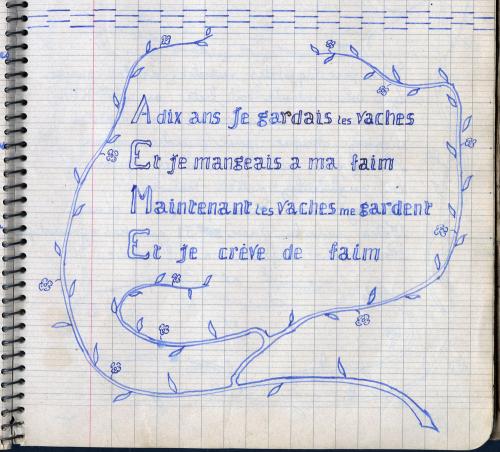 A dix ans je gardais les vaches
Et je mangeais a ma faim
Maintenant les vaches me gardent
Et je crève de faim